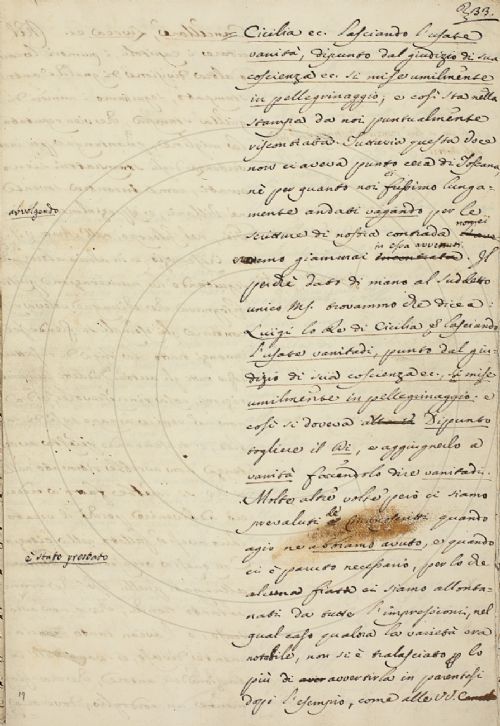 233.
Cicilia ec. lasciando l'usate
vanità, dipunto dal giudizio di sua
coscienza ec. si mise umilmente
in pellegrinaggio, e così sta nella
stampa da noi puntualmente
riscontrata. Tuttavia questa voce
non ci aveva punto cera di Toscana
nè per quanto noi ci fussimo lunga-
avvolgendo
mente andati vagando per le
scritture di nostra contrada
noi ci
in essa avvenuti
giammai incontrata. Il
perchè dato di mano al suddetto
unico MS. trovammo che dice a:
Luigi lo Re di Cicilia lasciando
l'usate vanitadi, punto dal giu-
dizio di sua coscienza ec., si mise
umilmente in pellegrinaggio: e
così si doveva Dipunto
togliere il Di, e aggiugnerlo a
vanità facendola dire vanitadi.
Molte altre volte però ci siamo
prevaluti quando
agio ne abbiamo avuto, e quando
è stato prestato
ci è paruto necessario, per lo che
alcuna fiata ci siamo allonta-
nati da tutte l'impressioni, nel
qual caso qualora la varietà era
notabile, non si è tralasciato lo
più di avvertirla in parentesi
dopo l'esempio, come alle VV.
19